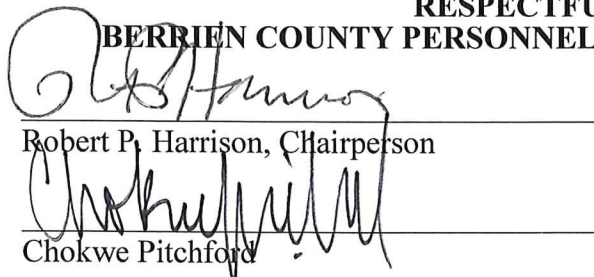 RESPECTFU
BERRIEN COUNTY PERSONNEL
Robert P. Harrison, Chairperson
Chokwe Pitchford